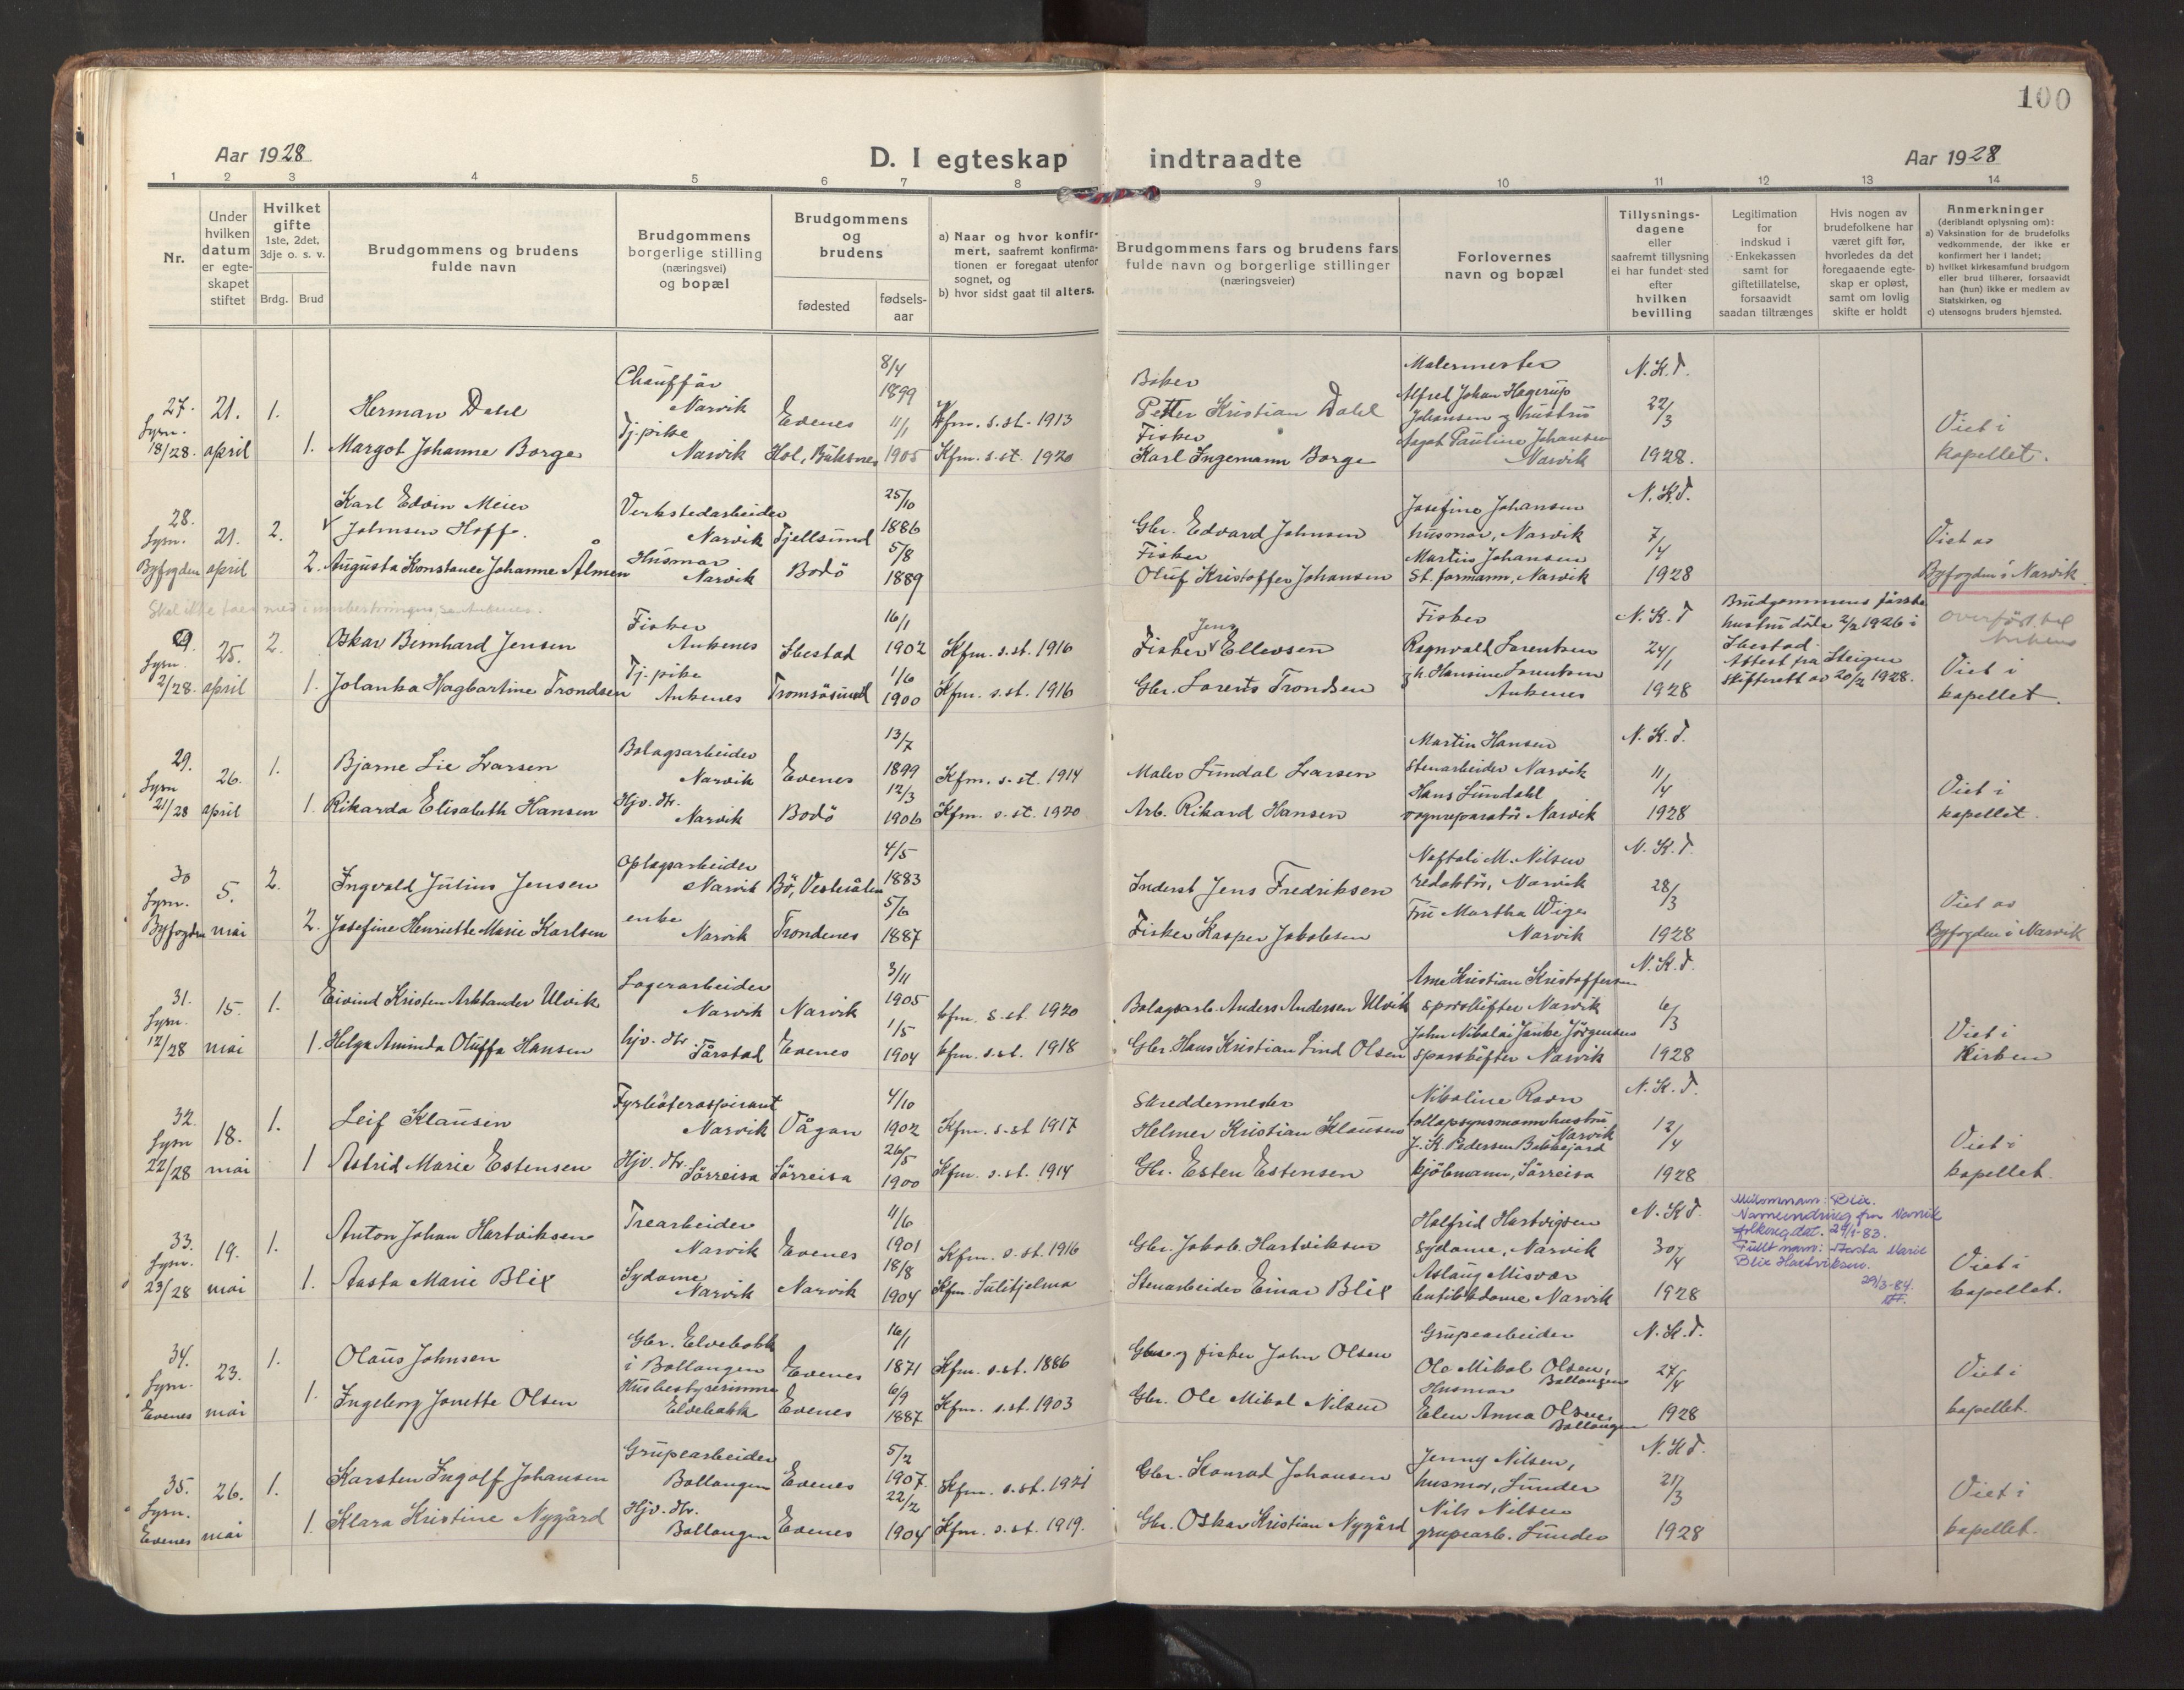 100
Aar 1928
D. I egteskap indtraadte
Aar 1928
1 2 3 4 5 6 7 8 9 10 11 12 13 14
Nr.
Under
hvilken
datum
er egte-
skapet
stiftet
Hvilket
gifte
1ste, 2det,
3dje o. s. v.
Brdg. Brud
Brudgommens og brudens
fulde navn
Brudgommens
borgerlige stilling
(næringsvei)
og bopæl
Brudgommens
og
brudens
fødested
fødsels-
aar
a) Naar og hvor konfir-
mert, saafremt konfirma-
tionen er foregaat utenfor
sognet, og
b) hvor sidst gaat til alters.
Brudgommens fars og brudens fars
fulde navn og borgerlige stillinger
(næringsveier)
Forlovernes
navn og bopæl
Tillysnings-
dagene
eller
saafremt tillysning
ei har fundet sted
efter
hvilken
bevilling
Legitimation
for
indskud i
Enkekassen
samt for
giftetillatelse,
forsaavidt
saadan tiltrænges
Hvis nogen av
brudefolkene har
været gift før,
hvorledes da det
foregaaende egte-
skap er opløst,
samt om lovlig
skifte er holdt
Anmerkninger
(deriblandt oplysning om):
a) Vaksination for de brudefolks
vedkommende, der ikke er
konfirmert her i landet;
b) hvilket kirkesamfund brudgom
eller brud tilhører, forsaavidt
han (hun) ikke er medlem av
Statskirken, og
c) utensogns bruders hjemsted.
27. Lysn. 18/28.
21. april
1. Herman Dahl
Chauffør Narvik
Evenes
8/4 1899
Kfm. s. st. 1913
Baker
Petter Kristian Dahl
Malermester
Alfred Johan Hagerup
Johansen og hustru
Aagot Pauline Johansen
Narvik
N. K. T.
22/3
1928.
1. Margot Johanne Borge
Tj.pike Narvik
Hol, Buksnes
11/1 1905
Kfm. s. st. 1920
Fisker
Karl Ingemann Borge
Viet i
kapellet.
28. Lysn. Byfogden
21. april
2. Karl Edvin Meier
Johnsen Hoff.
Verkstedarbeider
Narvik
Tjellsund
25/10 1886
Gbr. Edvard Johnsen
Josefine Johansen
husmor, Narvik
N. K. T.
7/4
1928
2. Augusta Konstance Johanne Ålmen
Husmor
Narvik
Bodø
5/8 1889
Fisker
Oluf Kristoffer Johansen
Martin Johansen
St. formann, Narvik
Viet av
Byfogden i Narvik.
Skal ikke taes med i
29. Lysn. 2/28.
25. april
2. Oskar Bernhard Jensen
Fisker
Ankenes
Ibestad
16/1 1902
Kfm. s. st. 1916
Jens
Fisker Ellevsen
Fisker
Ragnvald Lorentsen
g.h. Hansine Lorentsen
Ankenes
N. K. T
24/1
1928
Brudgommens første
hustru døde 2/2 1926 i
Ibestad.
Attest fra Steigen
skifterett av 20/2 1928.
overført til
Ankenes
1. Jolanka Hagbartine Trondsen
Tj.pike
Ankenes
Tromsøsund
1/6 1900
Kfm. s. st. 1916
Gbr. Lorents Trondsen
Viet i
kapellet.
29. Lysn 21/28
26. april
1. Bjarne Lie Larsen
Bolagsarbeider
Narvik
Evenes
13/7 1899
Kfm. s. st. 1914
Maler Lundal Larsen
Martin Hansen
stenarbeider Narvik
N. K. T.
11/4
1928
1. Rikarda Elisabeth Hansen
Hjv. dtr.
Narvik
Bodø
12/3 1906
Kfm. s. st. 1920
Arb. Rikard Hansen
Hans Lundahl
vognreparatør Narvik
Viet i
kapellet.
30 Lysn. Byfogden
5. mai
2. Ingvald Julius Jensen
Oplagsarbeider
Narvik
Bø, Vesterålen
4/5 1883
Inderst Jens Fredriksen
Naftali M. Nilsen
redaktør, Narvik
N. K. T.
28/3
1928
2. Josefine Henriette Marie Karlsen
enke
Narvik
Trondenes
5/6 1887
Fisker Kasper Jakobsen
Fru Martha Wige
Narvik
Viet av
Byfogden i Narvik
31. Lysn. 12/28
15. mai
1. Eivind Kristen Arktander Ulvik
Lagerarbeider
Narvik
Narvik
3/11 1905
kfm. s. st. 1920
Bolagsarb. Anders Andersen Ulvik
Arne Kristian Kristoffersen
sporskifter Narvik
N. K. T.
6/3
1928
1. Helga Aminda Oluffa Hansen
hjv. dtr.
Tårstad
Evenes
1/5 1904
kfm. s. st. 1918
Gbr. Hans Kristian Lind Olsen
John Nikolai Janke Jørgensen
sporskifter Narvik
Viet i
Kirken
32. Lysn 22/28
18. mai
1. Leif Klausen
Fyrbøteraspirant
Narvik
Vågan
4/10 1902
Kfm. s. st 1917
Skreddermester
Helmer Kristian Klausen
Nikoline Ravn
tollopsynsmannhustru
Narvik
N. K. T.
12/4
1928
1 Astrid Marie Estensen
Hjv. dtr.
Sørreisa
Sørreisa
26/5 1900
Kfm. s. st. 1914
Gbr. Esten Estensen
J. K. Pedersen Bakkejord
kjøbmann, Sørreisa
Viet i
kapellet.
33. Lysn. 23/28
19. mai
1. Anton Johan Hartviksen
Trearbeider
Narvik
Evenes
11/6 1901
Kfm. s. st. 1916
Gbr. Jakob Hartviksen
Halfrid Hartvigsen
sydame, Narvik
N. K. T.
30/4
1928
Mellomnavn: Blix.
Navneendring fra Narvik
folkereg. dat. 29/1-83.
Fullt navn: Aasta Marie
Blix Hartviksen.
29/3-84.
1. Aasta Marie Blix
Sydame
Narvik
Narvik
18/8 1904
Kfm. Sulitjelma
Stenarbeider Einar Blix
Aslaug Misvær
butikkdame Narvik
Viet i
kapellet.
34. Lysn. Evenes
23. mai
1. Olaus Johnsen
Gbr. Elvebakk
i Ballangen
Evenes
16/1 1871
Kfm. s. st. 1886
Gbr. og fisker John Olsen
Grupearbeider
Ole Mikal Olsen,
Ballangen
N. K. T.
27/4
1928
1. Ingeborg Janette Olsen
Husbestyrerinne
Elvebakk
Evenes
6/9 1887
Kfm. s. st. 1903
Gbr. Ole Mikal Nilsen
Husmor
Elen Anna Olsen,
Ballangen
Viet i
kapellet.
35. Lysn. Evenes
26. mai
1. Karsten Ingolf Johansen
Grupearbeider
Ballangen
Evenes
5/2 1907.
Kfm. s. st. 1921
Gbr. Konrad Johansen
Jenny Nilsen,
husmor, Sunder
N. K. T.
21/3
1928
1. Klara Kristine Nygård
Hjv. dtr.
Ballangen
Evenes
22/2 1904
Kfm. s. st. 1919.
Gbr. Oskar Kristian Nygård
Nils Nilsen
grupearb. Sunder
Viet i
kapellet.